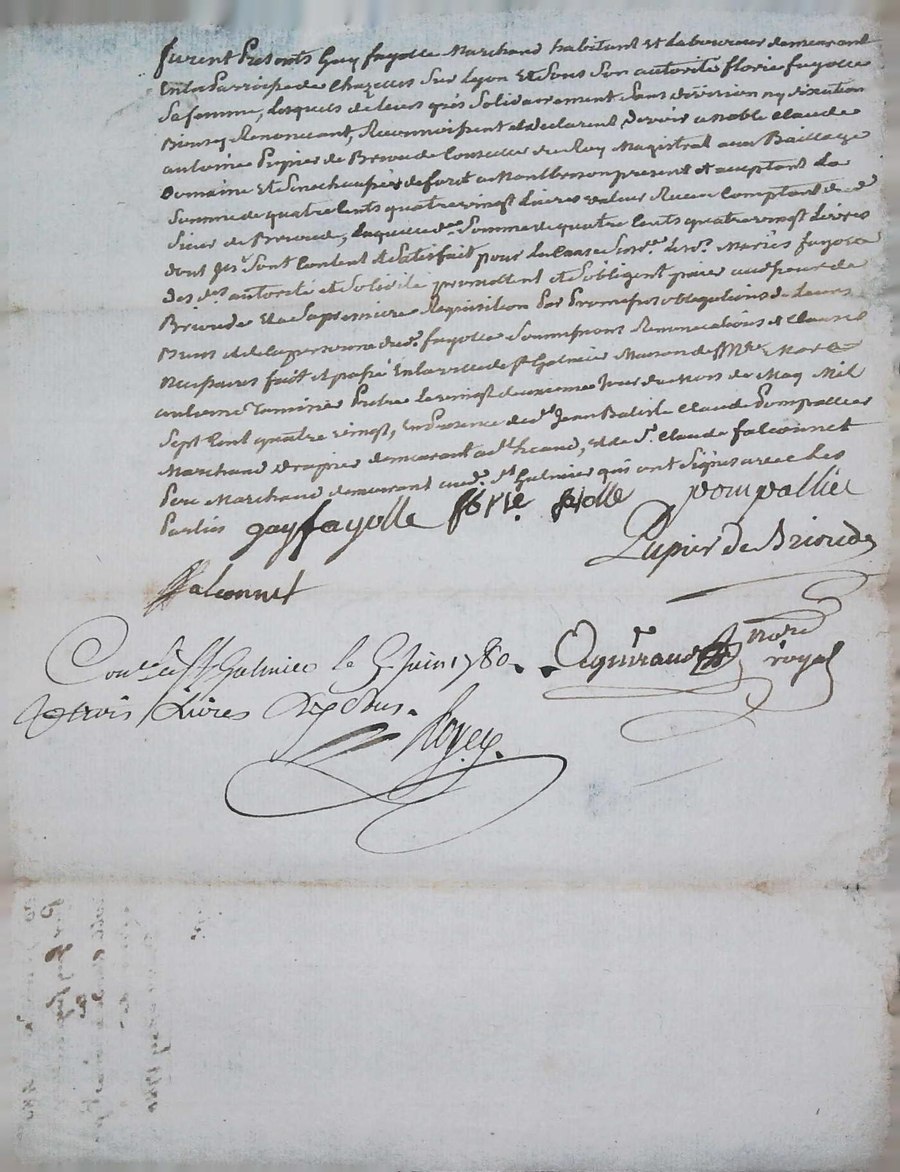 furent Presents Guy fayolle Marchand habitant et Laboureur demeurant
en la Parroisse de Chazelles Sur Lyon et Sous Son autorité florie fayolle
Sa femme, lesquels de leurs grés Solidairement Sans division ny discution
Renoncant, Reconnoissent et declarent devoir a noble Claude
antoine Pupier de Brioude Conseiller du Roy Magistrat aux Bailliage
Domaine et Senechaussée de forit a Montbrison present et acceptant La
Somme de quatre Cents quatre vingt Livres valeur Recue Comptant dud.
Sieur de Brioude, laquelle de. Somme de quatre Cents quatre vingt Livres
dont Ils Sont Content et Satisfait pour La Cause Susd. Lesd. Mariés fayolle
des des autorité et Solidité promettent et Sobligent païer aud Sieur de
Brioude et a Sa premiere Requisition Par Promesses obligations de Leurs
Biens et de la personne dud. fayolle Soumissions Renonciations et Clauses
Necessaires fait et passé en la ville de St Galmier Maison de
antienne Le vingt deuxieme Jour du Mois de May Mil
Sept Cent quatre vingt, en Presence de Sr Jean Batiste Claude Pompallier
Marchand drapier demeurant et de Sr. Claude falconnet
Pere Marchand demeurant aud. St Galmier qui ont Signés avec les
Parties guy fayolle florie fayolle pompallier
Pupier de Brioude
falconnet
Con. lé a St Galmier le 5 Juin 1780. nore
royal
trois Livres dix Sous.
Royer.